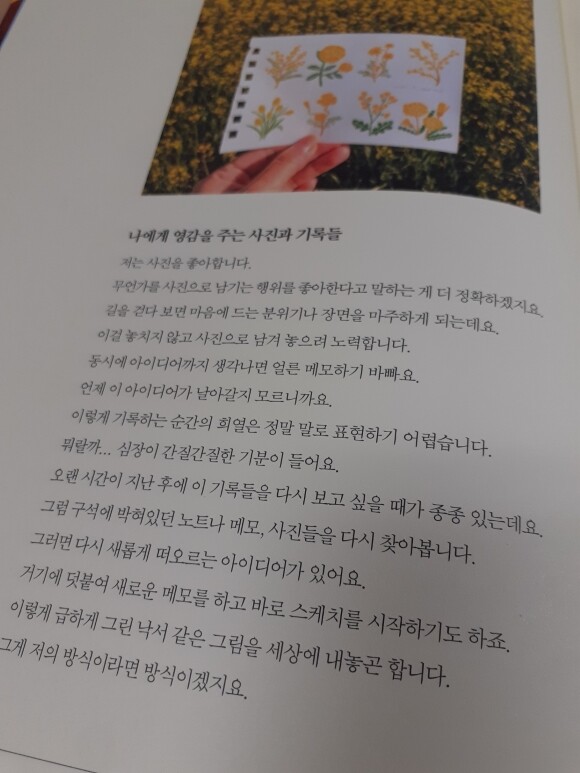 나에게 영감을 주는 사진과 기록들
저는 사진을 좋아합니다.
무언가를 사진으로 남기는 행위를 좋아한다고 말하는 게 더 정확하겠지요.
길을 걷다 보면 마음에 드는 분위기나 장면을 마주하게 되는데요.
이걸 놓치지 않고 사진으로 남겨 놓으려 노력합니다.
동시에 아이디어까지 생각나면 얼른 메모하기 바빠요.
언제 이 아이디어가 날아갈지 모르니까요.
이렇게 기록하는 순간의 희열은 정말 말로 표현하기 어렵습니다.
뭐랄까... 심장이 간질간질한 기분이 들어요.
오랜 시간이 지난 후에 이 기록들을 다시 보고 싶을 때가 종종 있는데요.
그럼 구석에 박혀있던 노트나 메모, 사진들을 다시 찾아봅니다.
그러면 다시 새롭게 떠오르는 아이디어가 있어요.
거기에 덧붙여 새로운 메모를 하고 바로 스케치를 시작하기도 하죠.
이렇게 급하게 그린 낙서 같은 그림을 세상에 내놓곤 합니다.
그게 저의 방식이라면 방식이겠지요.